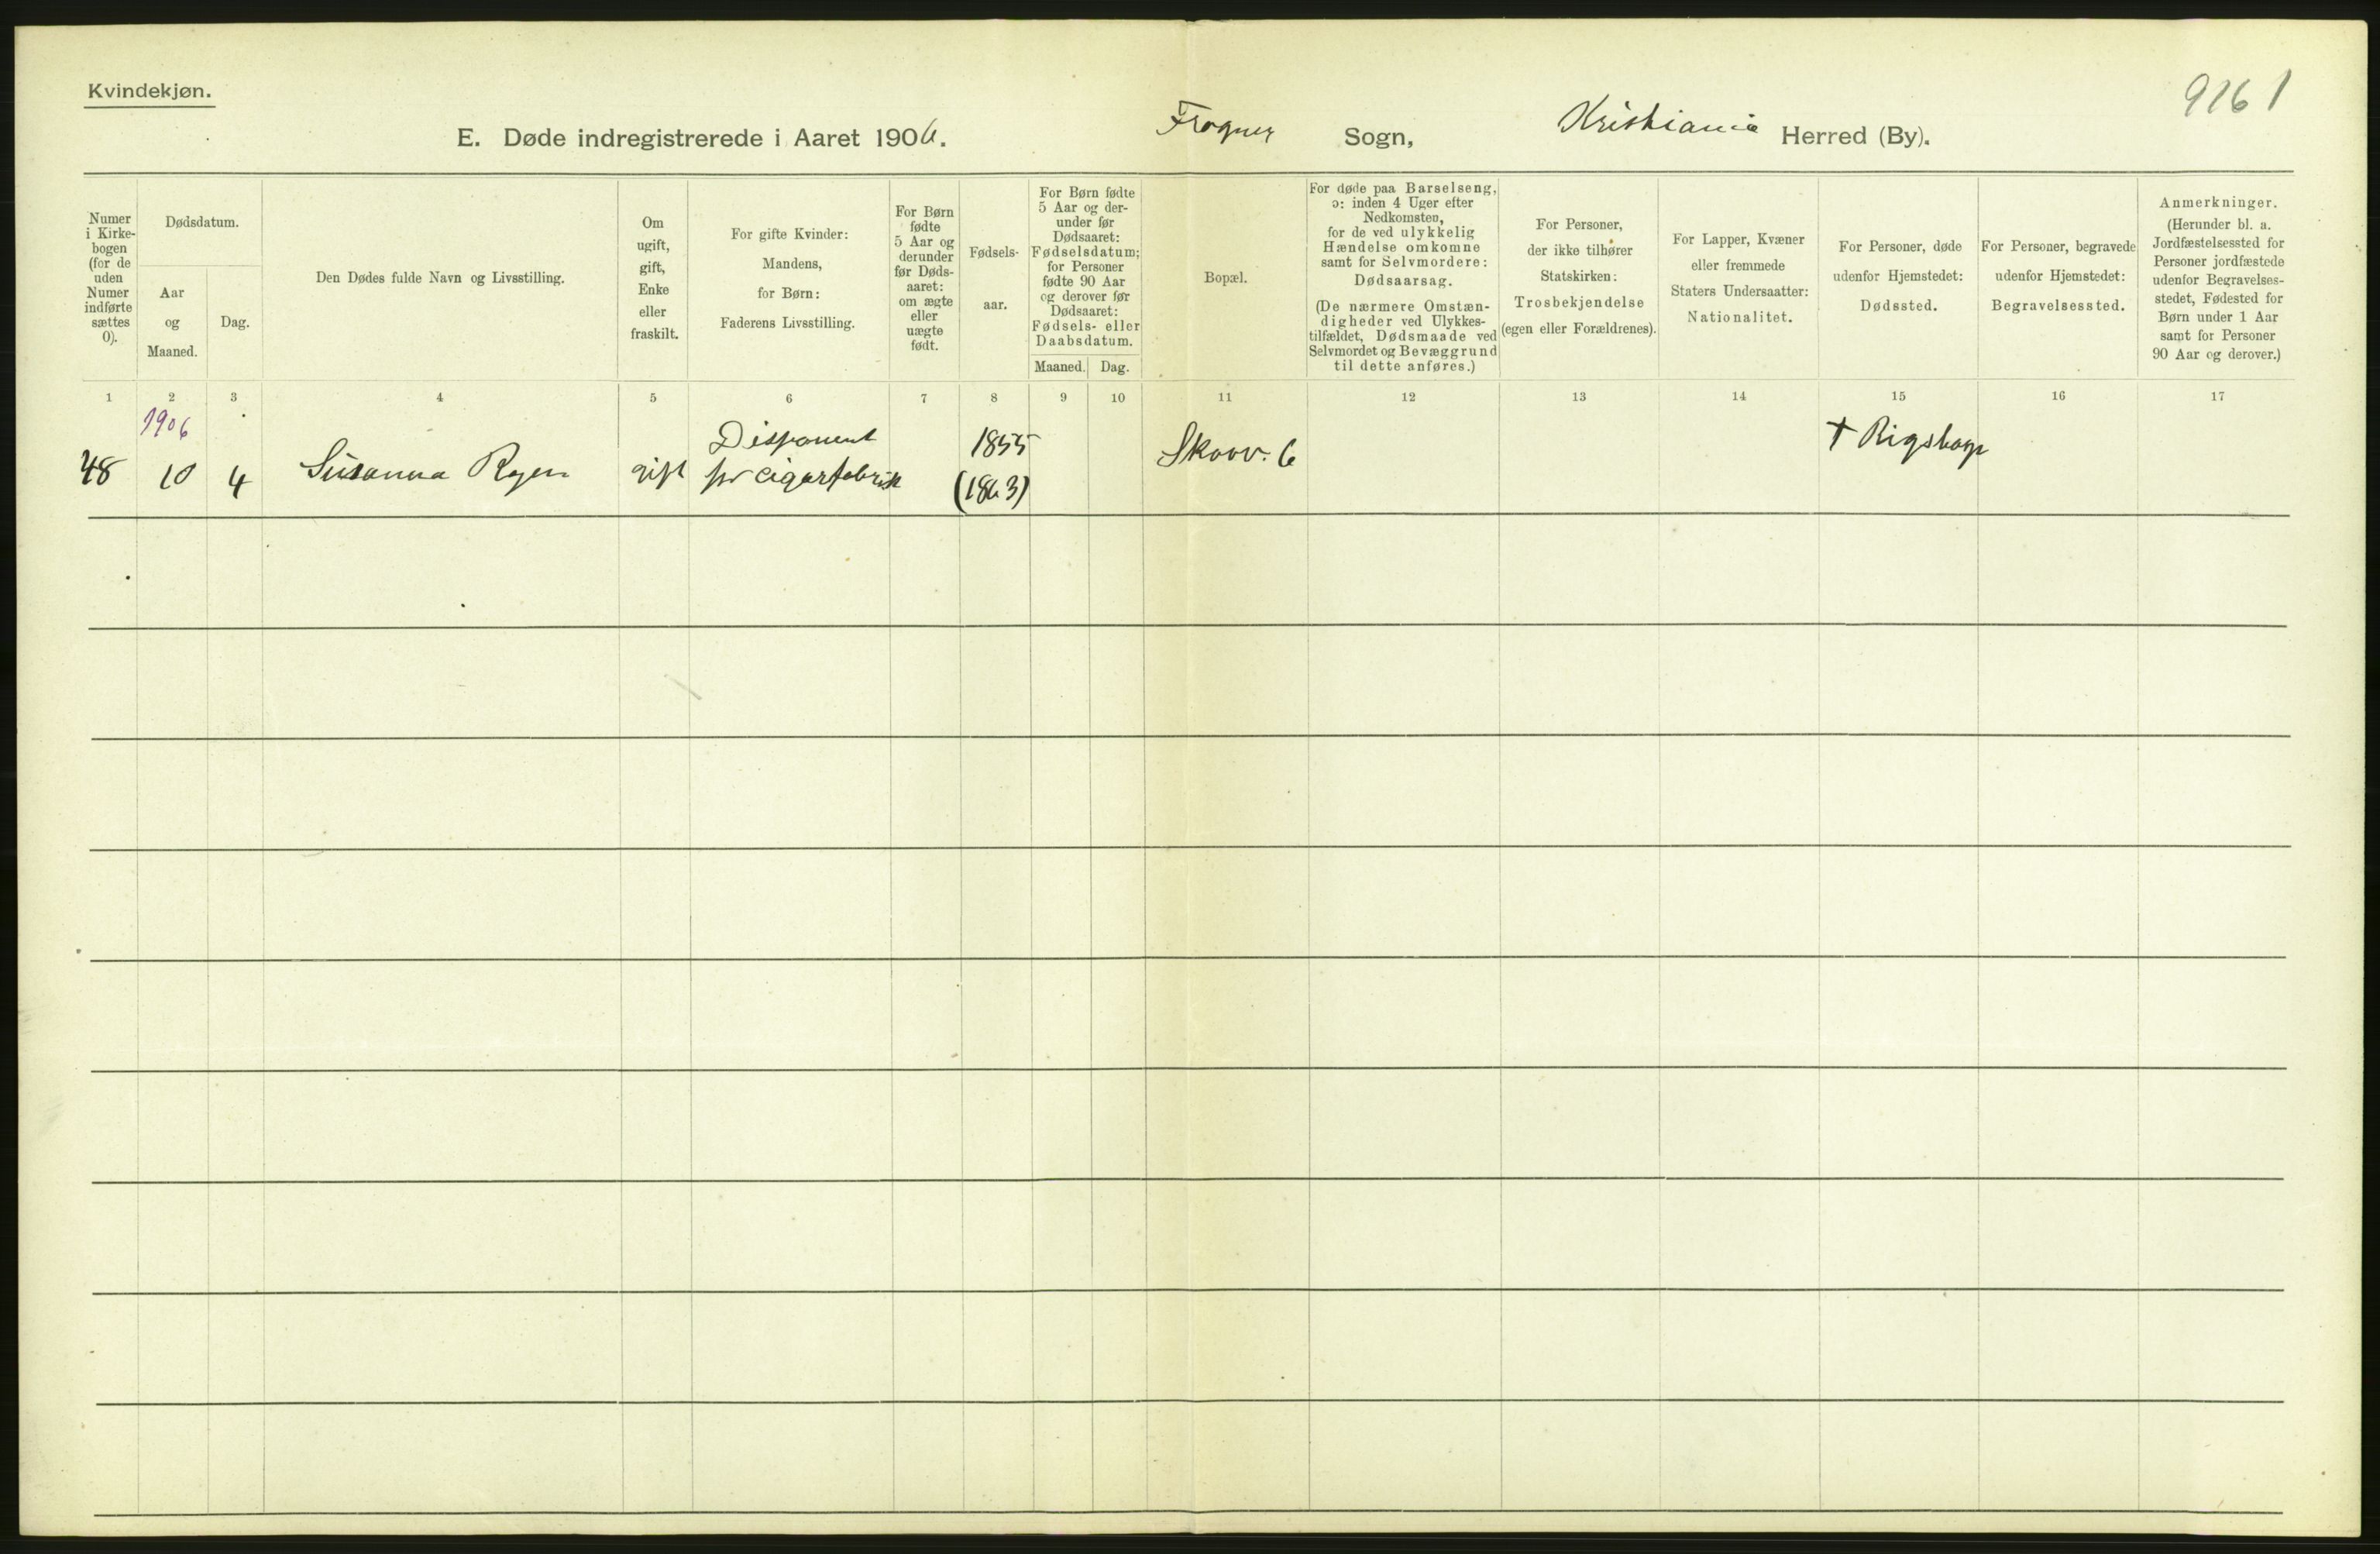 Kvindekjøn.
9161
E. Døde indregistrerede i Aaret 1906. Frogner Sogn, Kristiania Herred (By).
Numer
i Kirke-
bogen
(for de
uden
Numer
indførte
sættes
0).
Dødsdatum.
Aar
og
Maaned.
Dag.
Den Dødes fulde Navn og Livsstilling.
Om
ugift,
gift,
Enke
eller
fraskilt.
For gifte Kvinder:
Mandens,
for Børn:
Faderens Livsstilling.
For Børn
fødte
5 Aar og
derunder
før Døds-
aaret:
om ægte
eller
uægte
født.
Fødsels-
aar.
For Børn fødte
5 Aar og der-
under før
Dødsaaret:
Fødselsdatum;
for Personer
fødte 90 Aar
og derover før
Dødsaaret:
Fødsels- eller
Daabsdatum.
Maaned. Dag.
Bopæl.
For døde paa Barselseng,
ɔ: inden 4 Uger efter
Nedkomsten,
for de ved ulykkelig
Hændelse omkomne
samt for Selvmordere:
Dødsaarsag.
(De nærmere Omstæn-
digheder ved Ulykkes-
tilfældet, Dødsmaade ved
Selvmordet og Bevæggrund
til dette anføres.)
For Personer,
der ikke tilhører
Statskirken:
Trosbekjendelse
(egen eller Forældrenes).
For Lapper, Kvæner
eller fremmede
Staters Undersaatter:
Nationalitet.
For Personer, døde
udenfor Hjemstedet:
Dødssted.
For Personer, begravede
udenfor Hjemstedet:
Begravelsessted.
Anmerkninger.
(Herunder bl. a.
Jordfæstelsessted for
Personer jordfæstede
udenfor Begravelses-
stedet, Fødested for
Børn under 1 Aar
samt for Personer
90 Aar og derover.)
1 2 3 4 5 6 7 8 9 10 11 12 13 14 15 16 17
1906 Disponent 1855 † Rigshosp
48 10 4 Susanna Ryen gift for Cigarfabrik (1863) Skovv. 6